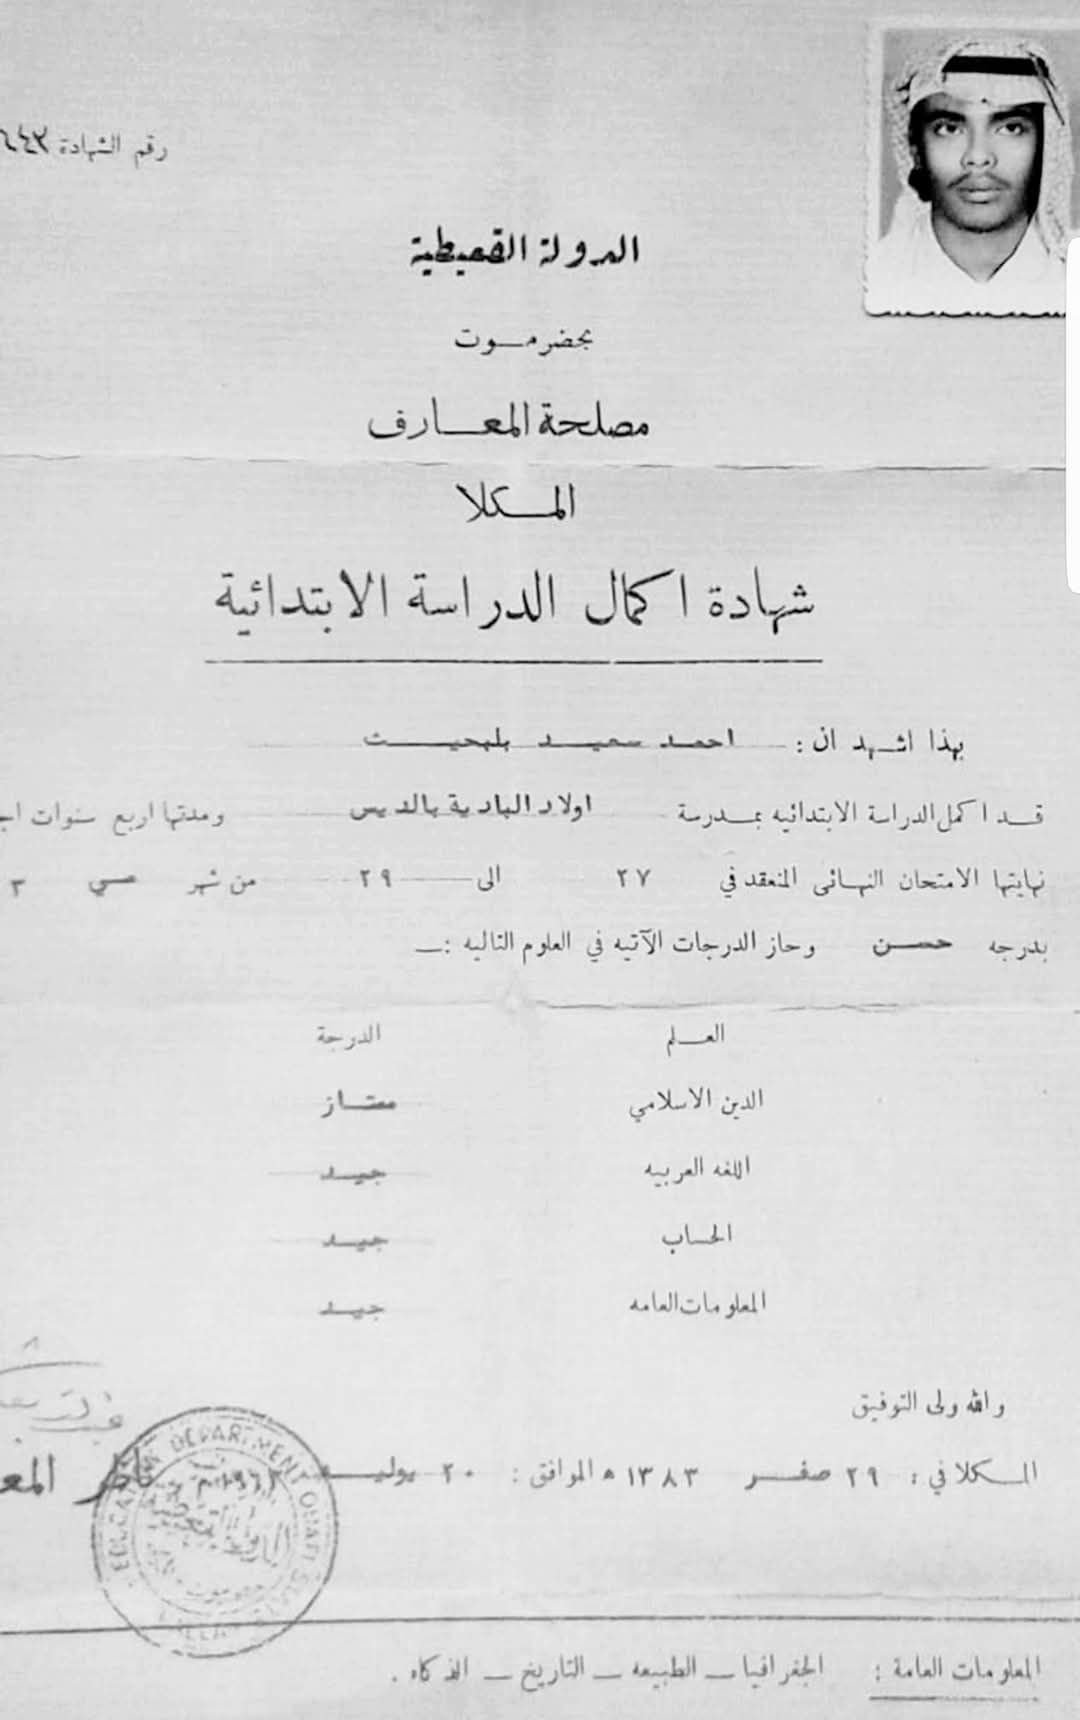 رقم الشهادة
الدولة القعيطية
بحضرموت
مصلحة المعارف
المكلا
شهادة اكمال الدراسة الابتدائية
بهذا اشهد ان : احمد سعيد بلبحيث
قد اكمل الدراسة الابتدائيه بمدرسة اولاد البادية بالديس ومدتها اربع سنوات
نهايتها الامتحان النهائى المنعقد في ٢٧ الى ٢٩ من شهر مي ٣
بدرجه حسن وحاز الدرجات الآتيه في العلوم التاليه :—
العلم الدرجة
الدين الاسلامي ممتاز
اللغه العربيه جيد
الحساب جيد
المعلومات العامه جيد
والله ولى التوفيق
المكلا في : ٢٩ صفر ١٣٨٣ ه الموافق : ٢٠ يوليو ١٩٦٣م ناظر
EDUCATION DEPARTMENT QUAITI
المعلومات العامة : الجغرافيا — الطبيعه — التاريخ — الذكاه .